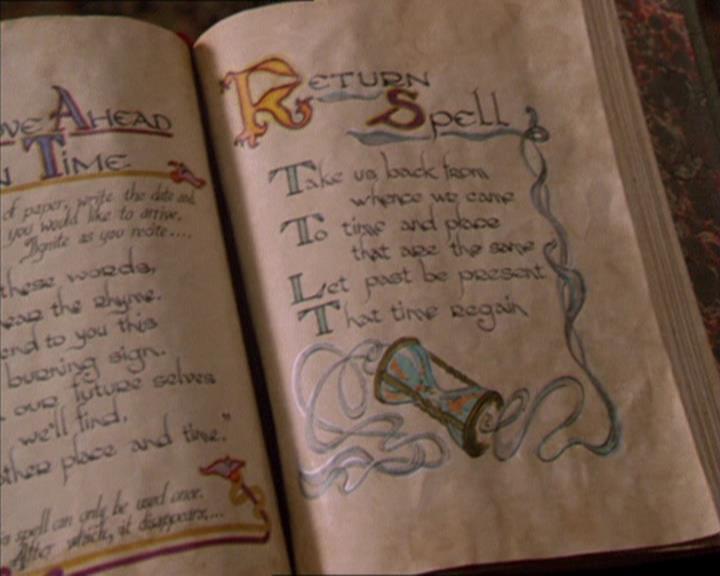 ove Ahead
n Time
of paper, write the date and
you would like to arrive.
Ignite as you recite....
these words,
ear the rhyme.
end to you this
burning sign.
our future selves
we'll find,
other place and time."
spell can only be used once.
After which, it disappears....
Return
Spell
Take us back from
whence we came
To time and place
that are the same
Let past be present
That time regain